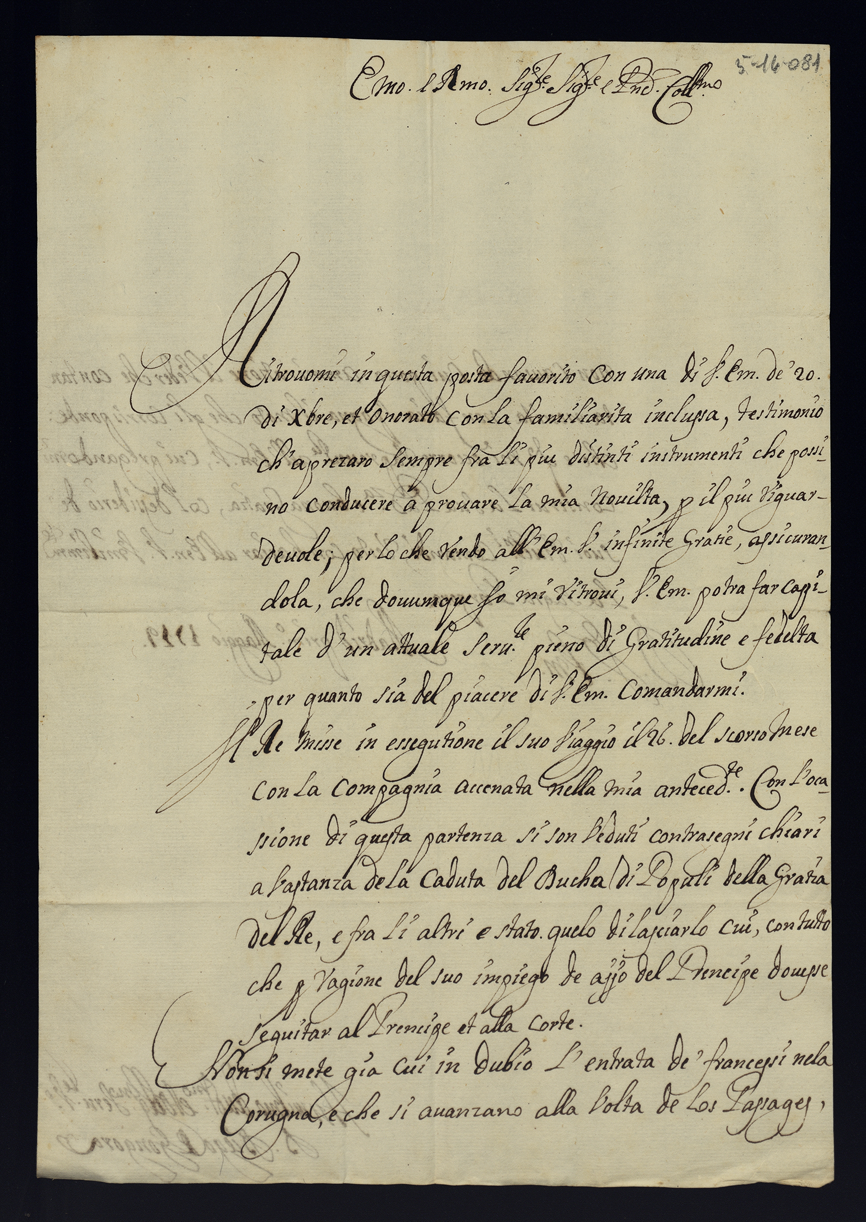 5-14-081
Emo. e Rmo. Sig.re Sig.re e Pnd. Coll.mo
Ritrouomi in questa posta favorito con una di V. Em. de' 20.
di Xbre, et onorato con la familiarita inclussa, testimonio
ch'aprezaro sempre fra li piu distinti instrumenti che possi-
no conducere à prouare la mia nouilta, p il piu riguar-
deuole; per lo che rendo all'Em. V. infinite Gratie, assicuran-
dola, che douumque Io mi ritroui, V. Em. potra far capi-
tale d'un attuale seru.te pieno di Gratitudine e fedelta
per quanto sia del piacere di V. Em. Comandarmi.
Il Re misse in essegutione il suo Viaggio il 26. del scorso Mese
con la Compagnia accenata nella mia anteced.te. Con l'oca-
ssione di questa partenza si son Veduti contrasegni chiari
a bastanza de la Caduta del Ducha di Populi della Gratia
del Re, e fra li altri e stato quelo di lasciarlo cui, con tutto
che p ragione del suo impiego de ajo del Prencipe douesse
seguitar al Prencipe et alla Corte.
Non si mete gia cui in dubio l'entrata de' francessi nela
Corugna, e che si auanzano alla Volta de los Passages,